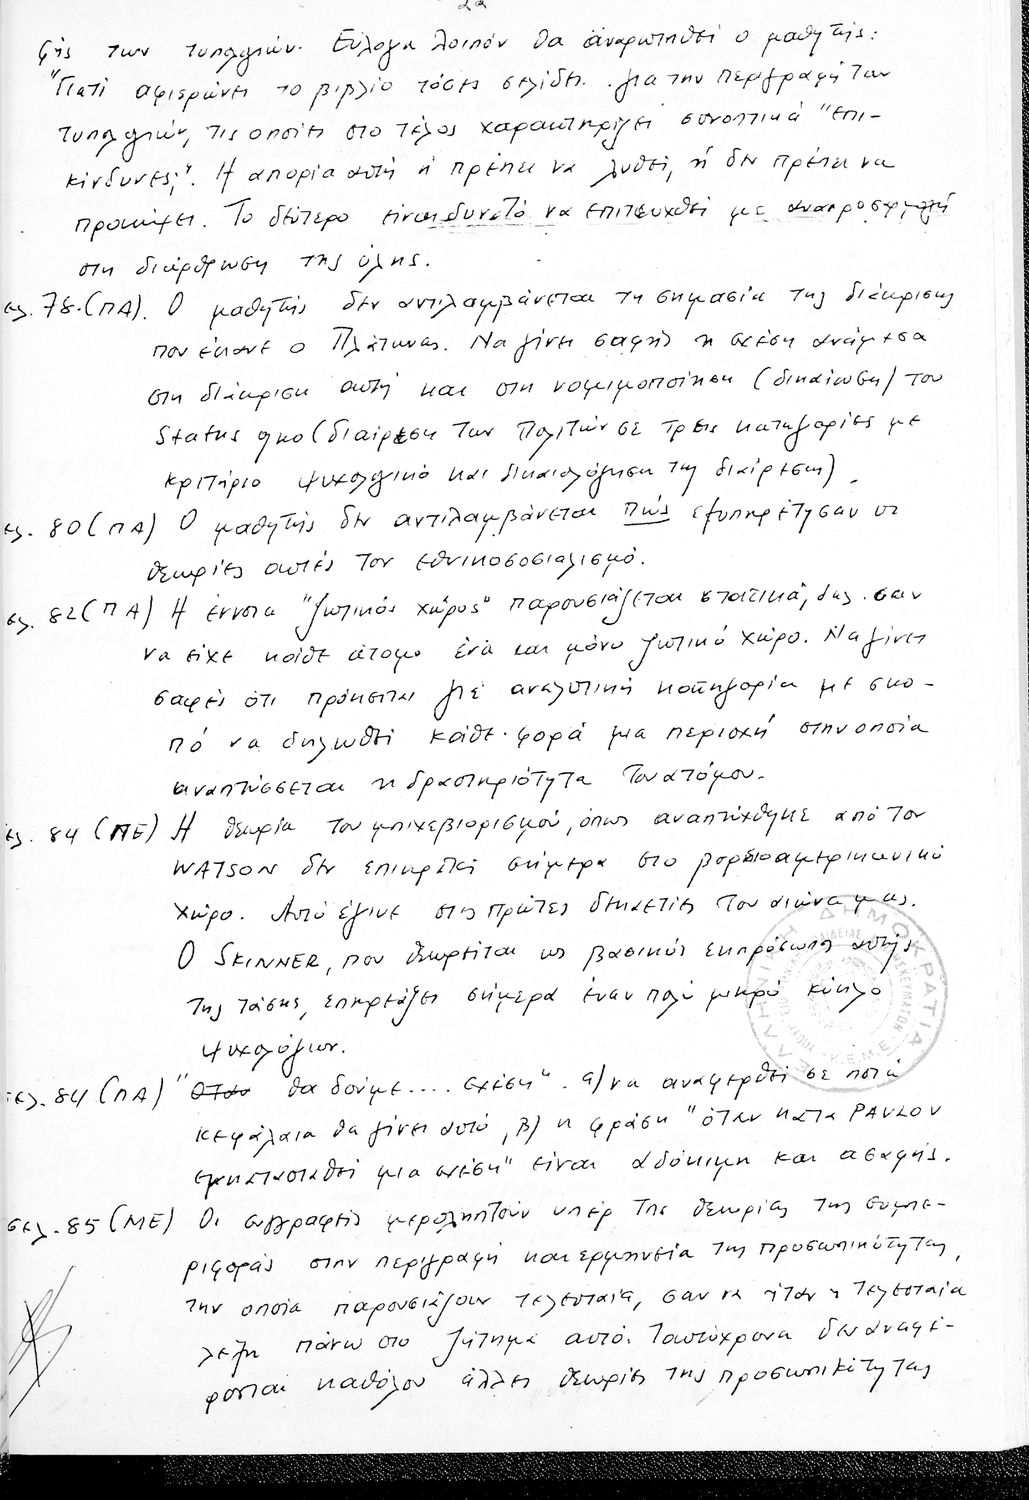 22
ζής των τυπολογιών. Εύλογα λοιπόν θα αναρωτηθεί ο μαθητής:
"Γιατί αφιερώνει το βιβλίο τόσες σελίδες για την περιγραφή των
τυπολογιών, τις οποίες στο τέλος χαρακτηρίζει συνοπτικά "επι-
κίνδυνες;". Η απορία αυτή ή πρέπει να λυθεί, ή δεν πρέπει να
προκύψει. Το δεύτερο είναι δυνατό να επιτευχθεί με αναπροσαρμογή
στη διάρθρωση της ύλης.
σελ. 78 (ΠΑ). Ο μαθητής δεν αντιλαμβάνεται τη σημασία της διάκρισης
που έκανε ο Πλάτωνας. Να γίνει σαφής η σχέση ανάμεσα
στη διάκριση αυτή και στη νομιμοποίηση (δικαίωση) του
Status quo (διαίρεση των πολιτών σε τρεις κατηγορίες με
κριτήριο ψυχολογικό και δικαιολόγηση της διαίρεσης).
σελ. 80 (ΠΑ) Ο μαθητής δεν αντιλαμβάνεται πώς εξυπηρέτησαν οι
θεωρίες αυτές τον εθνικοσοσιαλισμό.
σελ. 82 (ΠΑ) Η έννοια "ζωτικός χώρος" παρουσιάζεται στατικά, δηλ. σαν
να είχε κάθε άτομο ένα και μόνο ζωτικό χώρο. Να γίνει
σαφές ότι πρόκειται για αναλυτική κατηγορία με σκο-
πό να δηλωθεί κάθε φορά μια περιοχή στην οποία
αναπτύσσεται η δραστηριότητα του ατόμου.
σελ. 84 (ΠΕ) Η θεωρία του μπιχεβιορισμού, όπως αναπτύχθηκε από τον
WATSON δεν επικρατεί σήμερα στο βορειοαμερικανικό
χώρο. Αυτό έγινε στις πρώτες δεκαετίες του αιώνα μας.
Ο SKINNER, που θεωρείται ως βασικός εκπρόσωπος αυτής
της τάσης, επηρεάζει σήμερα έναν πολύ μικρό κύκλο
ψυχολόγων.
σελ. 84 (ΠΑ) "Όταν θα δούμε.... σχέση". α) να αναφερθεί σε ποιά
κεφάλαια θα γίνει αυτό, β) η φράση "όταν κατά PAVLOV
εγκατασταθεί μια σχέση" είναι αδόκιμη και ασαφής.
σελ. 85 (ΜΕ) Οι συγγραφείς μεροληπτούν υπέρ της θεωρίας της συμπε-
ριφοράς στην περιγραφή και ερμηνεία της προσωπικότητας,
την οποία παρουσιάζουν τελευταία, σαν να ήταν η τελευταία
λέξη πάνω στο ζήτημα αυτό. Ταυτόχρονα δεν αναφέ-
ρονται καθόλου άλλες θεωρίες της προσωπικότητας
ΕΛΛΗΝΙΚΗ ΔΗΜΟΚΡΑΤΙΑ
Κ.Ε.Μ.Ε.